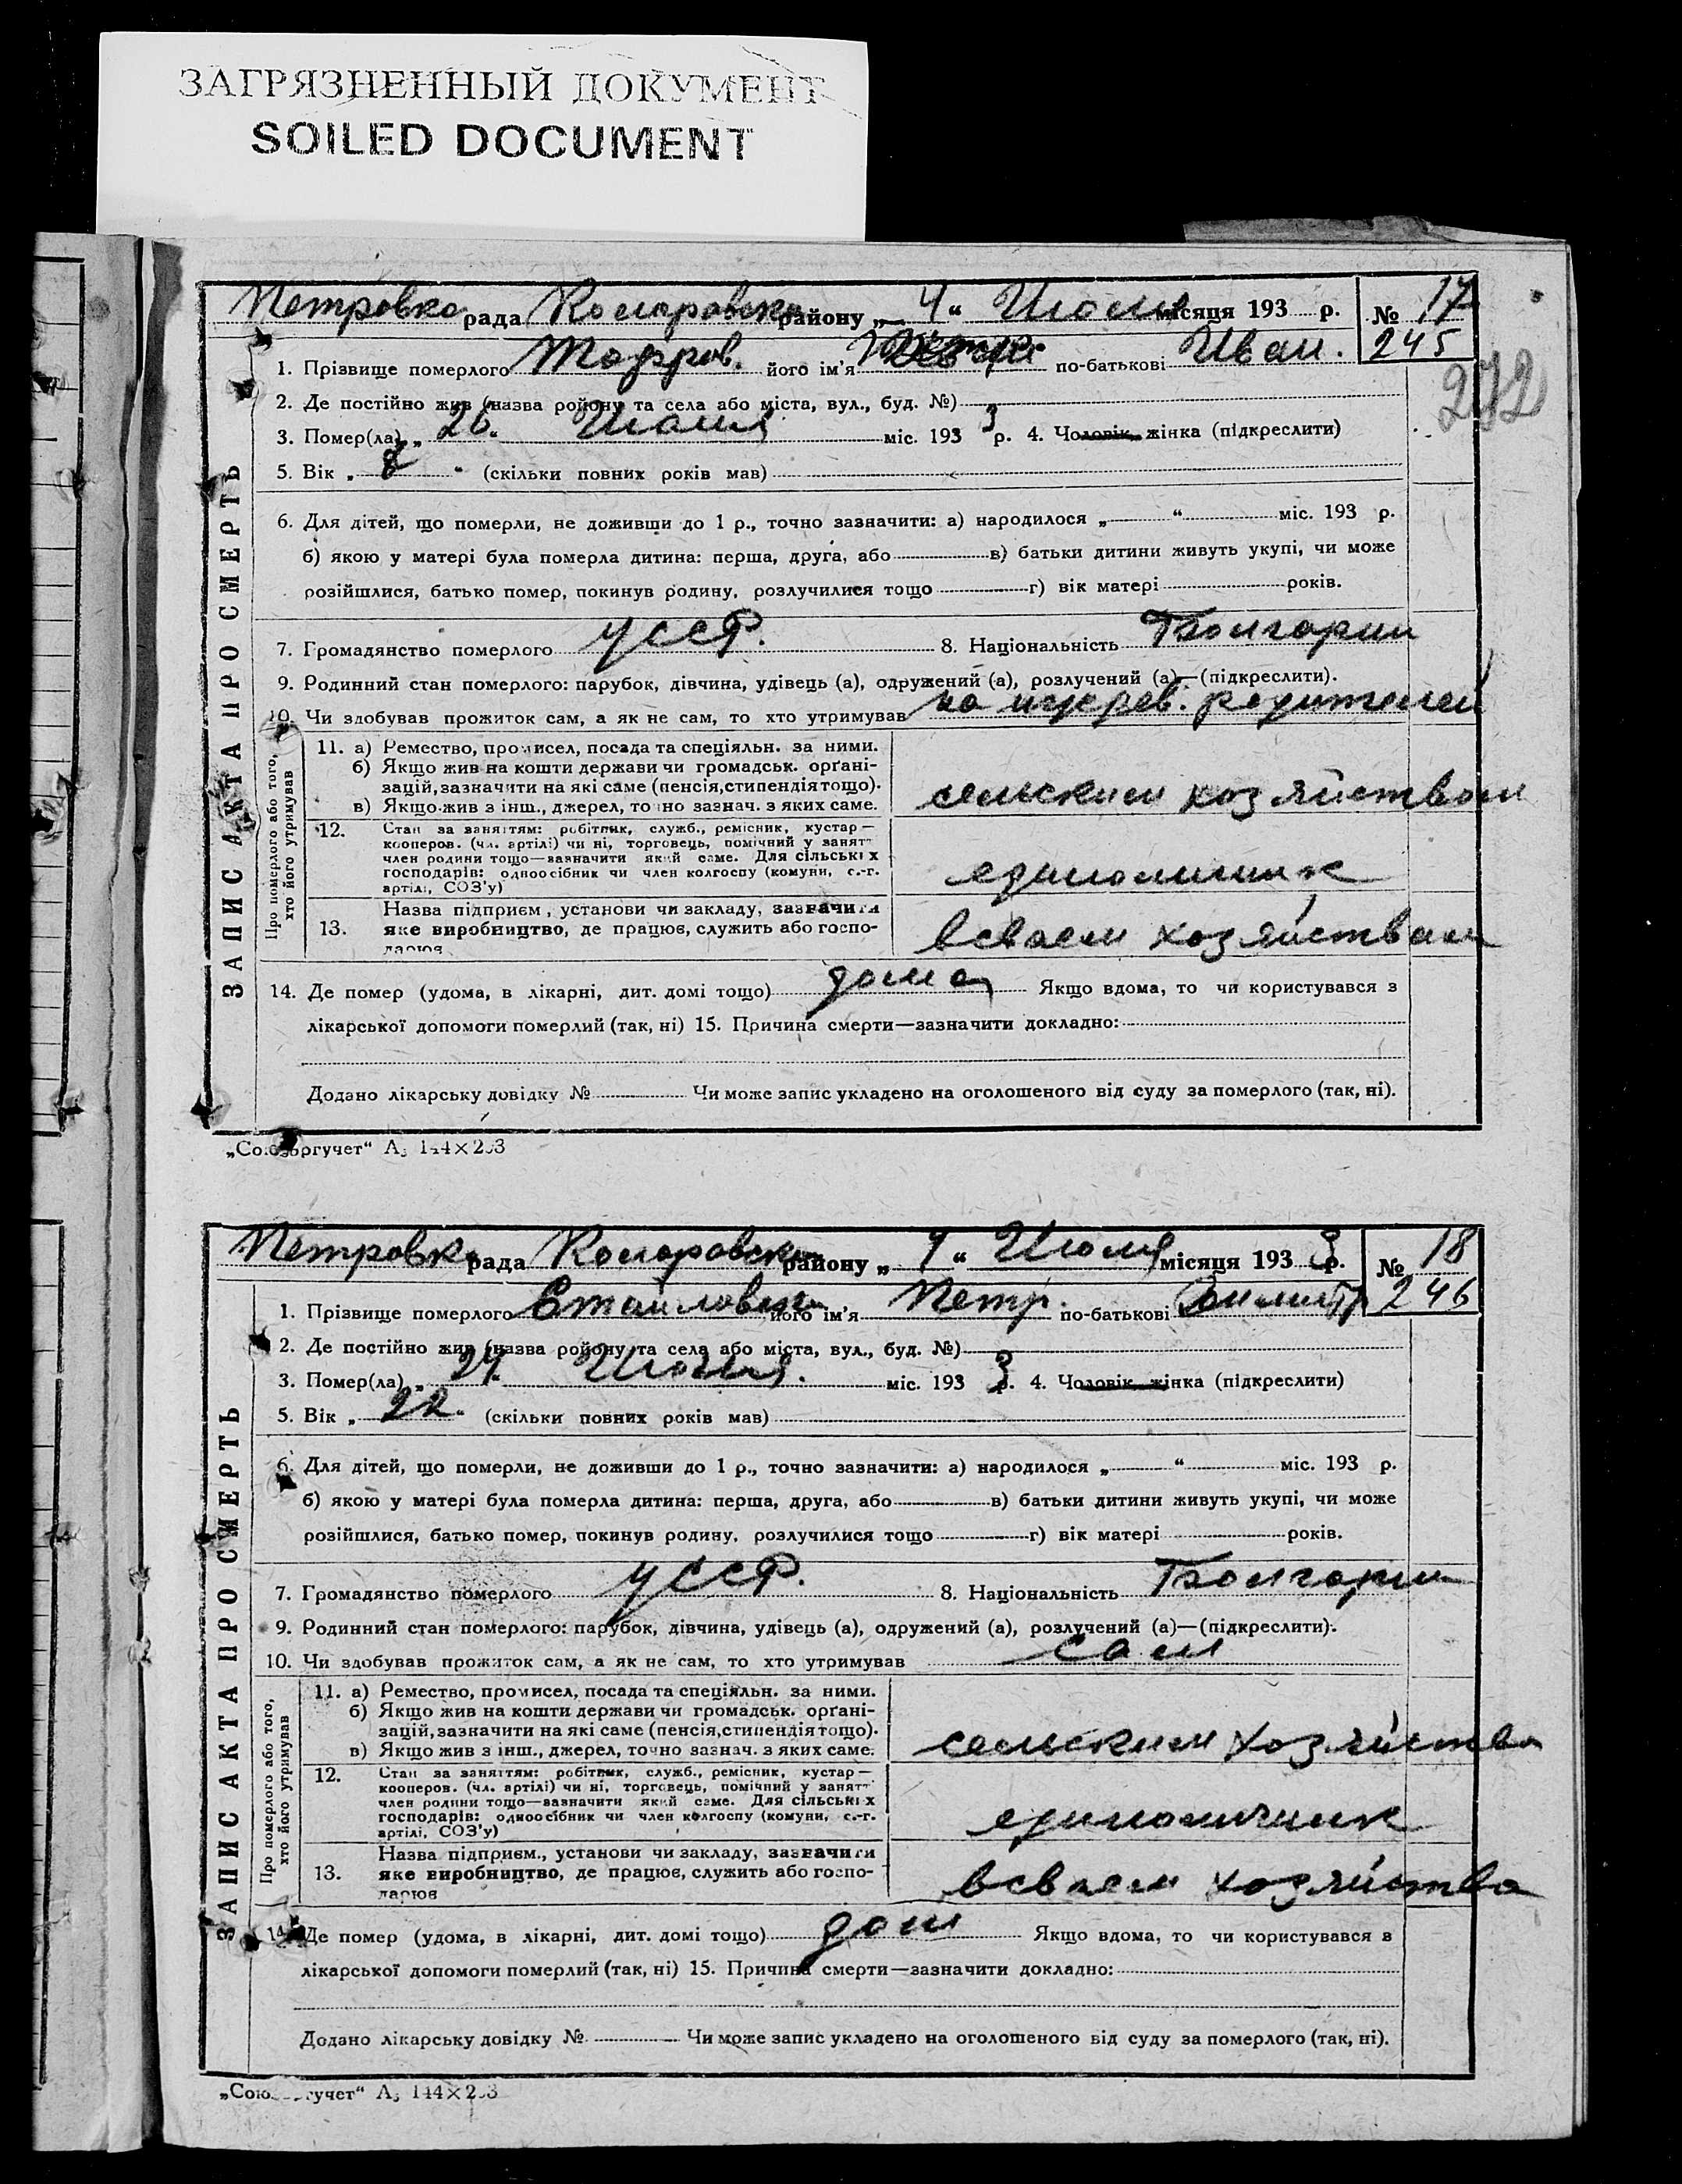 ЗАГРЯЗНЕННЫЙ ДОКУМЕНТ
SOILED DOCUMENT
Петровка рада Коларовско району „ 4 “ Июля місяця 193 р. № 17
245
1. Прізвище померлого його ім'я по-батькові Иван.
272
2. Де постійно жив (назва ройону та села або міста, вул., буд. №)
3. Помер(ла) „ 26. міс. 193 3 р. 4. Чоловік, жінка (підкреслити)
5. Вік „ 8 “ (скільки повних років мав)
6. Для дітей, що померли, не доживши до 1 р., точно зазначити: а) народилося „ “ міс. 193 р.
б) якою у матері була померла дитина: перша, друга, або в) батьки дитини живуть укупі, чи може
розійшлися, батько помер, покинув родину, розлучилися тощо г) вік матері років.
7. Громадянство померлого УССР. 8. Національність Болгарин
9. Родинний стан померлого: парубок, дівчина, удівець (а), одружений (а), розлучений (а)—(підкреслити).
10. Чи здобував прожиток сам, а як не сам, то хто утримував на иждев. родителей
11. а) Ремество, промисел, посада та спеціяльн. за ними.
б) Якщо жив на кошти держави чи громадськ. орґані-
зацій, зазначити на які саме (пенсія, стипендія тощо).
в) Якщо жив з інш., джерел, точно зазнач. з яких саме.
сельским хозяйством
12. Стан за заняттям: робітник, служб., ремісник, кустар—
кооперов. (чл. артілі) чи ні, торговець, помічний у занятт
член родини тощо—зазначити який саме. Для сільських
господарів: одноосібник чи член колгоспу (комуни, с.-г.
артілі, СОЗ'у)
единоличник
Назва підприєм., установи чи закладу, зазначити
13. яке виробництво, де працює, служить або госпо-
дарює
всваем хозяйствам
14. Де помер (удома, в лікарні, дит. домі тощо) дома Якщо вдома, то чи користувався з
лікарської допомоги померлий (так, ні) 15. Причина смерти—зазначити докладно:
Додано лікарську довідку № Чи може запис укладено на оголошеного від суду за померлого (так, ні).
ЗАПИС АКТА ПРО СМЕРТЬ
Про померлого або того,
хто його утримував
„Союзоргучет“ А₅ 144×203
Петровка рада Коларовско району „ 4 “ Июля місяця 193 3 р. № 18
246
1. Прізвище померлого його ім'я Петр. по-батькові Димитр
2. Де постійно жив (назва ройону та села або міста, вул., буд. №)
3. Помер(ла) „ міс. 193 3 р. 4. Чоловік, жінка (підкреслити)
5. Вік „ 22. (скільки повних років мав)
6. Для дітей, що померли, не доживши до 1 р., точно зазначити: а) народилося „ “ міс. 193 р.
б) якою у матері була померла дитина: перша, друга, або в) батьки дитини живуть укупі, чи може
розійшлися, батько помер, покинув родину, розлучилися тощо г) вік матері років.
7. Громадянство померлого УССР. 8. Національність Болгарин
9. Родинний стан померлого: парубок, дівчина, удівець (а), одружений (а), розлучений (а)—(підкреслити).
10. Чи здобував прожиток сам, а як не сам, то хто утримував сам
11. а) Ремество, промисел, посада та спеціяльн. за ними.
б) Якщо жив на кошти держави чи громадськ. орґані-
зацій, зазначити на які саме (пенсія, стипендія тощо).
в) Якщо жив з інш., джерел, точно зазнач. з яких саме.
сельским хозяйства
12. Стан за заняттям: робітник, служб., ремісник, кустар—
кооперов. (чл. артілі) чи ні, торговець, помічний у занятт
член родини тощо—зазначити який саме. Для сільських
господарів: одноосібник чи член колгоспу (комуни, с.-г.
артілі, СОЗ'у)
единоличник
Назва підприєм., установи чи закладу, зазначити
13. яке виробництво, де працює, служить або госпо-
дарює
всваем хозяйства
14. Де помер (удома, в лікарні, дит. домі тощо) дом Якщо вдома, то чи користувався з
лікарської допомоги померлий (так, ні) 15. Причина смерти—зазначити докладно:
Додано лікарську довідку № Чи може запис укладено на оголошеного від суду за померлого (так, ні).
ЗАПИС АКТА ПРО СМЕРТЬ
Про померлого або того,
хто його утримував
„Союзоргучет“ А₅ 144×203